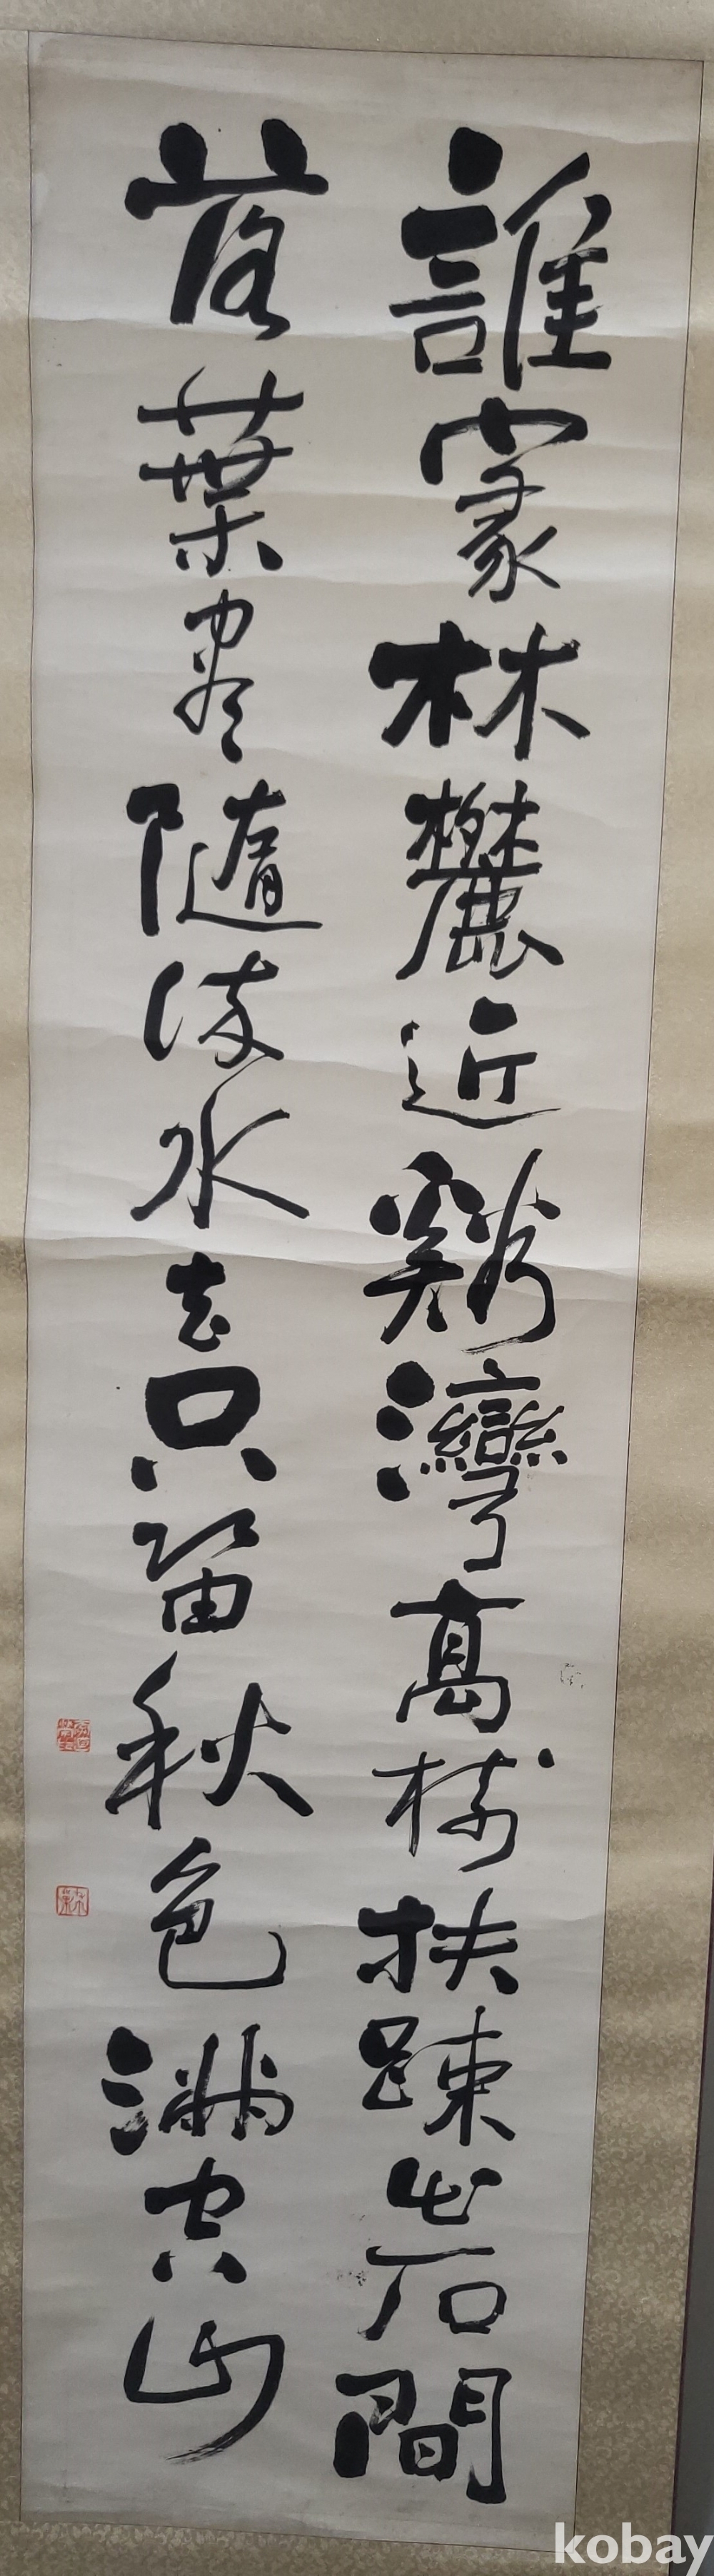 誰家林麓近谿灣高樹扶踈出石間
落葉盡隨流水去只留秋色滿空山
kobay